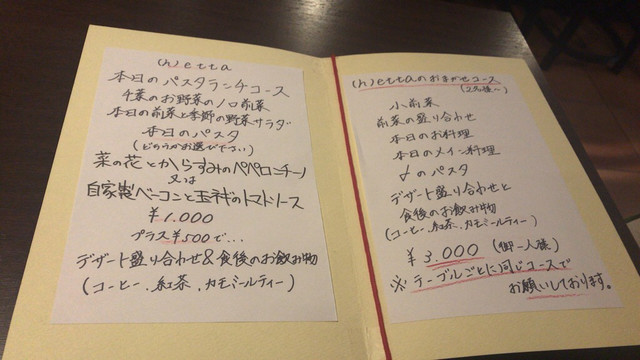 (h)etta
本日のパスタランチコース
千葉のお野菜の一口前菜
本日の前菜と季節の野菜サラダ
本日のパスタ
(どちらかお選び下さい)
菜の花とからすみのペペロンチーノ
又は
自家製ベーコンと玉ネギのトマトソース
¥1.000
プラス¥500で…
デザート盛り合わせ&食後のお飲み物
(コーヒー、紅茶、カモミールティー)
(h)ettaのおまかせコース
(2名様〜)
小前菜
前菜の盛り合わせ
本日のお料理
本日のメイン料理
〆のパスタ
デザート盛り合わせと
食後のお飲み物
(コーヒー、紅茶、カモミールティー)
¥3.000 (御一人様)
※テーブルごとに同じコースで
お願いしております。